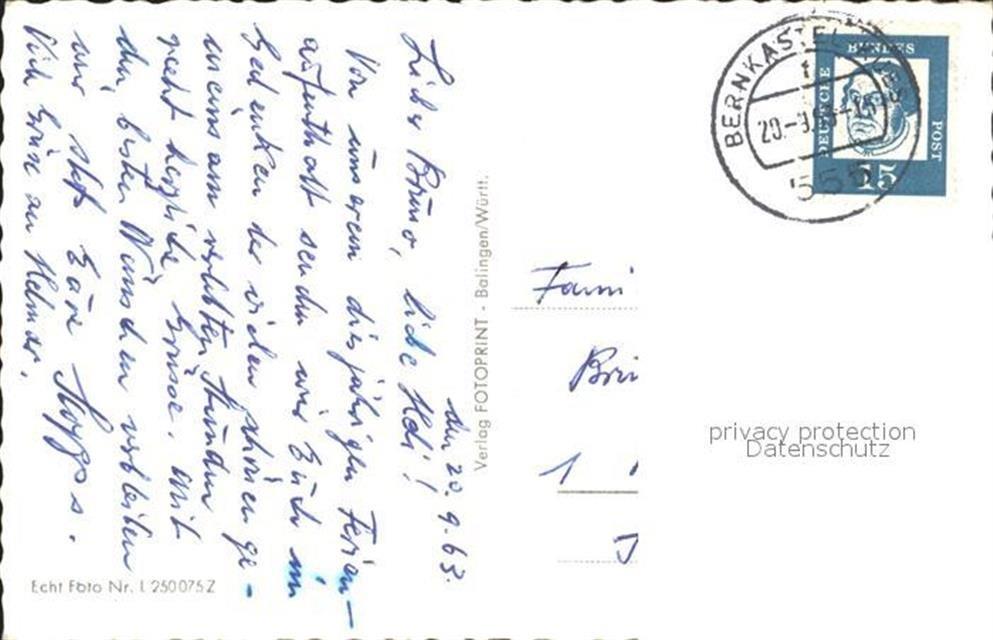 den 20. 9. 63.
Lieber Bruno, liebe Hedi!
Von unserem diesjährigen Ferien-
aufenthalt senden wir Euch im
Gedenken der vielen schönen ge-
meinsam verlebten Stunden
recht herzliche Grüsse. Mit
den besten Wünschen verbleiben
wir stets Eure
viele Grüße an Helmar.
Verlag FOTOPRINT - Balingen/Württ.
Echt Foto Nr. L 250075Z
BERNKASTEL
20.-9.63-15
555
DEUTSCHE
BUNDES
POST
15
Fami
1
privacy protection
Datenschutz